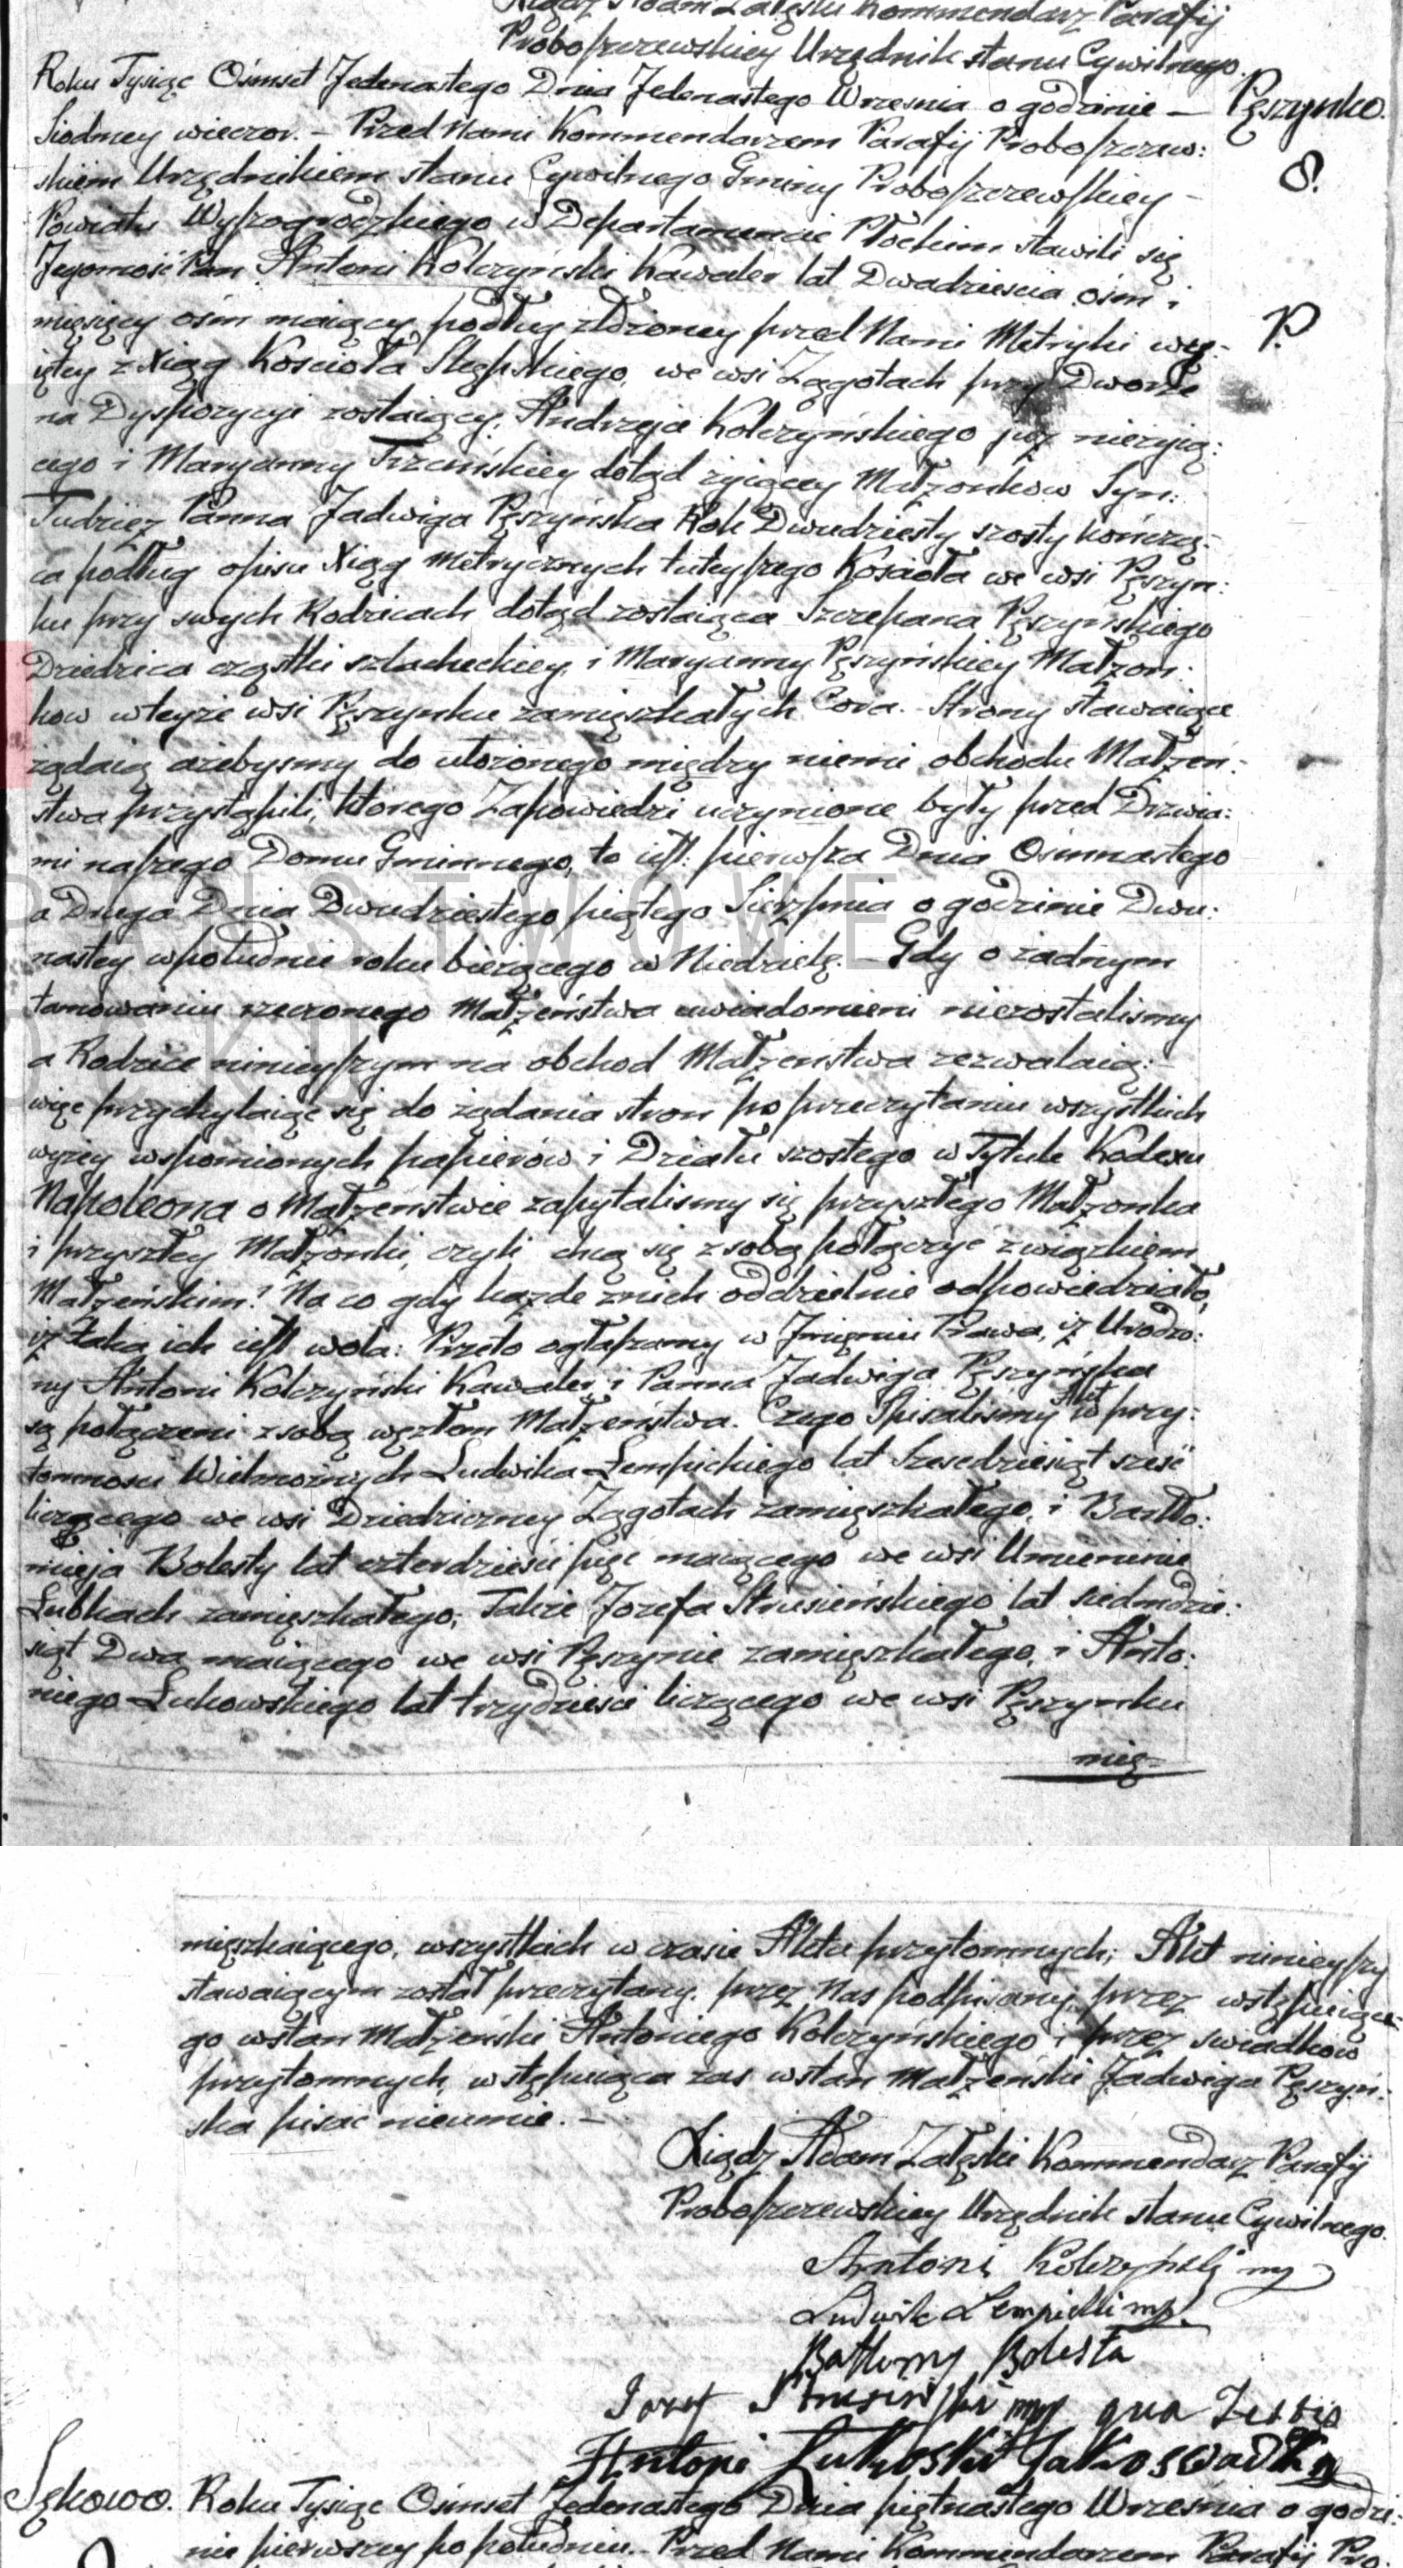 Xiądz Adam Załęski Kommendarz Parafij
Proboszczewskiey Urzędnik stanu Cywilnego.
Roku Tysiąc Osmset Jedenastego Dnia Jedenastego Wrzesnia o godzinie —
Pęszynko.
Siodmey wieczor. – Przed Nami Kommendarzem Parafij Proboszczew:
8.
skiem Urzędnikiem stanu Cywilnego Gminy Proboszczewskiey –
Powiatu Wyszogrodzkiego w Departamencie Płockim stawili się
Jegomość Pan Antoni Kolczyński Kawaler lat Dwadziescia osm i
miesięcy osm maiący, podług złożoney przed Nami Metryki wy:
P.
iętey z Xiąg Kościoła Slepskiego, we wsi Zągotach przy Dworze
na Dyspozycyi zostaiący, Andrzeja Kolczyńskiego już nieżyią:
cego i Maryanny Trzcińskiey dotąd żyiącey Małżonkow Syn:
Tudzież Panna Jadwiga Pęszyńska Rok Dwudziesty szosty kończą:
ca podług opisu Xiąg Metrycznych tuteyszego Kościoła we wsi Pęszyn:
ku przy swych Rodzicach dotąd zostaiąca Szczepana Pęszyńskiego
Dziedzica cząstki szlacheckiey i Maryanny Pęszyńskiey Małżon:
kow w teyże wsi Pęszynku zamięszkałych Cora. Strony stawaiące
żądaią ażebysmy do ułożonego między niemi obchodu Małżeń:
stwa przystąpili, ktorego Zapowiedzi uczynione były przed Drzwia:
mi naszego Domu Gminnego, to iest: pierwsza Dnia Osmnastego
a Druga Dnia Dwudziestego piątego Sierpnia o godzinie Dwu:
nastey w południe roku bieżącego w Niedzielę. – Gdy o żadnym
tamowaniu rzeczonego Małżeństwa uwiadomieni niezostalismy
a Rodzice ninieyszym na obchod Małżeństwa zezwalaią:
więc przychylaiąc się do żądania stron po przeczytaniu wszystkich
wyżey wspomionych papierów i Działu szostego w Tytule Kodexu
Napoleona o Małżenstwie zapytalismy się przyszłego Małżonka
i przyszłey Małżonki, czyli chcą się z sobą połączyć związkiem
Małżeńskim? Na co gdy każde z nich oddzielnie odpowiedziało,
iż taka ich iest wola: Przeto ogłaszamy w Jmieniu Prawa, iż Urodzo:
ny Antoni Kolczyński Kawaler i Panna Jadwiga Pęszyńska
są połączeni z sobą węzłem Małżeństwa. Czego Spisalismy Akt w przy:
tomnosci Wielmożnych Ludwika Łempickiego lat Szescdziesiąt szesć
liczącego we wsi Dziedziczney Zągotach zamięszkałego, i Bartło:
mieja Bolesty lat czterdziesci pięć maiącego we wsi Umieninie
Łubkach zamięszkałego, Także Jozefa Strusieńskiego lat siedmdzie:
siąt Dwa maiącego we wsi Pęszynie zamięszkałego, i Anto:
niego Łukowskiego lat trzydziesci liczącego we wsi Pęszynku
mię-
mięszkaiącego, wszystkich w czasie Aktu przytomnych; Akt ninieyszy
stawaiącym został przeczytany, przez Nas podpisany, przez wstępuiące-
go w stan Małżeński Antoniego Kolczyńskiego i przez swiadkow
przytomnych, wstępuiąca zas w stan Małżeński Jadwiga Pęszyń:
ska pisac nieumie. –
Xiądz Adam Załęski Kommendarz Parafij
Proboszczewskiey Urzędnik stanu Cywilnego.
Antoni Kolczyński mp
Ludwik Łempicki mp.
Bartłomy Bolesta
Jozef Strusiński mp qua Testis
Antoni Łukoski Jako swiadek
Sękowo. Roku Tysiąc Osmset Jedenastego Dnia piętnastego Wrzesnia o godzi:
nie pierwszey po południu. Przed Nami Kommendarzem Parafij Pro.